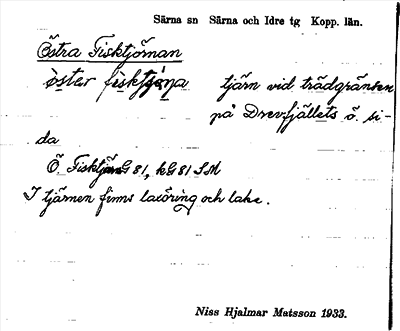 Särna sn Särna och Idre tg Kopp. län.
Östra Fisktjöman
öster fisktjöna tjärn vid trädgränsen
på Drevfjällets ö. si-
da
Ö. Fisktjärn G 81, kG 81 SM
I tjärnen finns laxöring och lake.
Niss Hjalmar Matsson 1933.